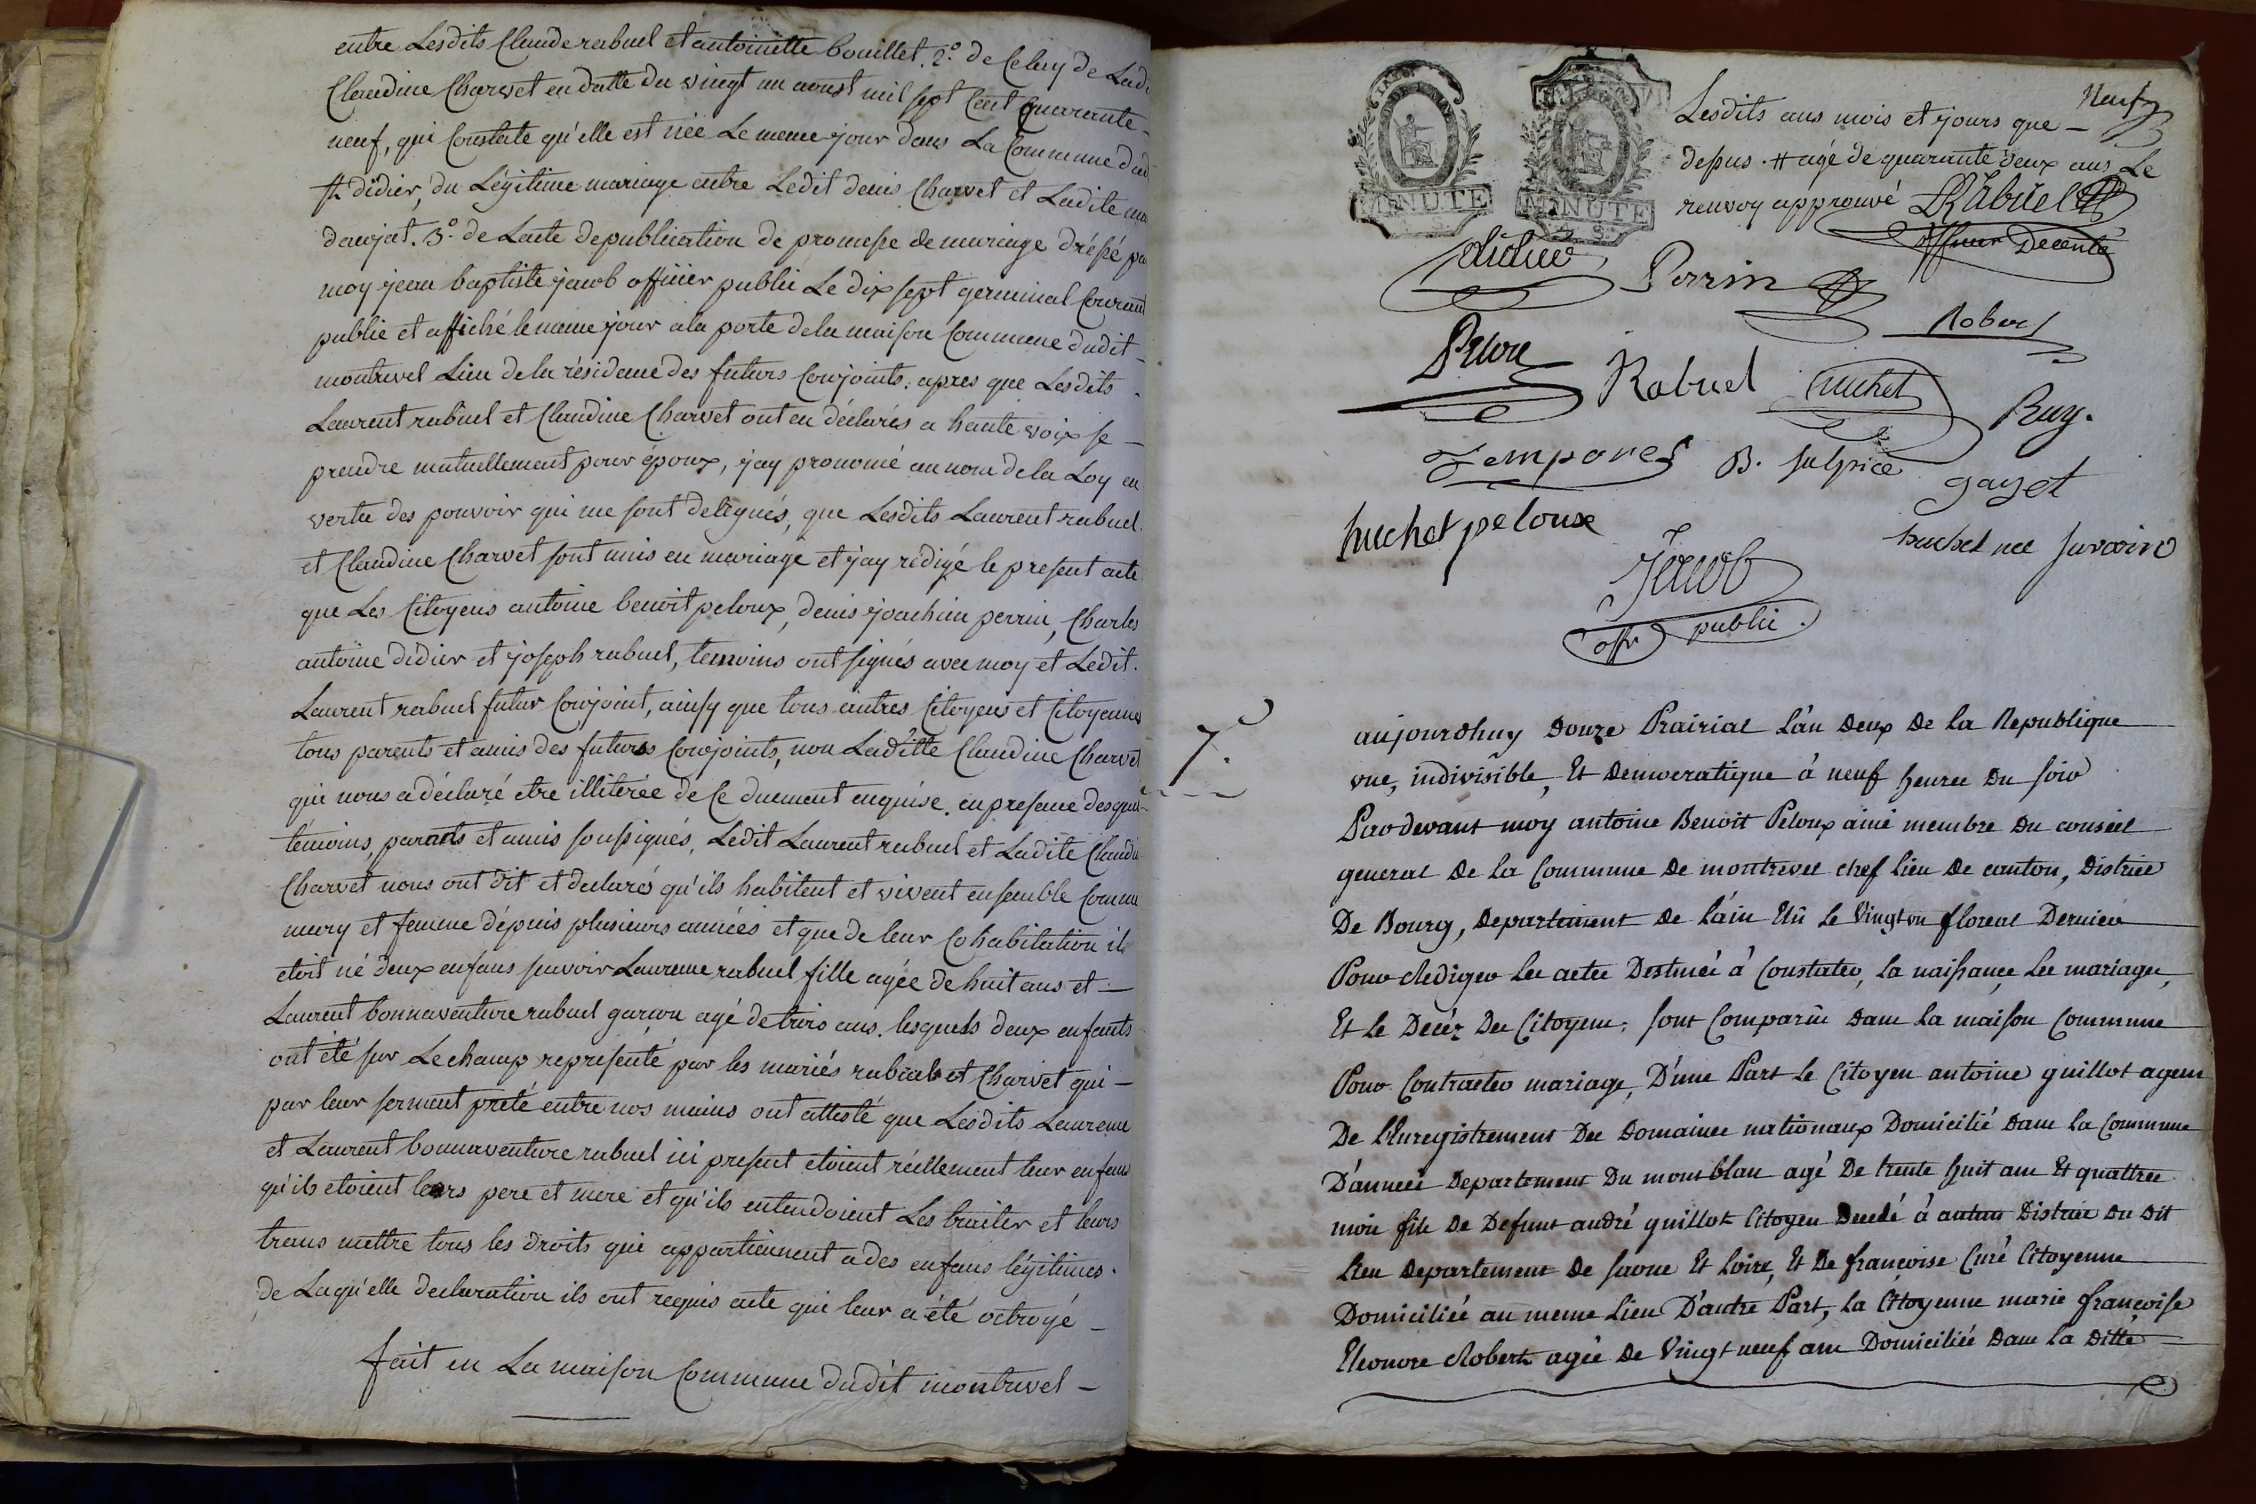 entre Lesdits Claude rabuel et antoinette bouillet. 2.o de Celuy de Lad
Claudine Charvet en datte du vingt un aoust mil sept Cent quarante
neuf, qui Constate qu'elle est née Le meme jour dans La Commune dud
st didier, du Légitime mariage entre Ledit denis Charvet et Ladite
daujat. 3.o de Lacte depublication de promesse de mariage dréssé pa
moy jean baptiste jacob officier public Le dix sept germinal Courant
publié et affiché le meme jour ala porte dela maison Commune dudit
montrevel Lieu dela résidence des futurs Conjoints, apres que Lesdits
Laurent rabuel et Claudine Charvet ont eu déclarés a haute voix se
prendre mutuellement pour époux, j'ay prononcé au nom dela Loy en
vertu des pouvoir qui me sont delégués, que Lesdits Laurent rabuel
et Claudine Charvet sont unis en mariage et j'ay rédigé le present acte
que Les Citoyens antoine benoit peloux, denis joachim perrin, Charles
antoine didier et joseph rabuel, temoins ont signés avec moy et Ledit
Laurent rabuel futur Conjoint, ainsy que tous autres Citoyens et Citoyennes
tous parents et amis des futurs Conjoints, non Laditte Claudine Charvet
qui nous a déclaré etre illiterée de Ce duement enquise. en presence desquels
témoins, parents et amis soussignés, Ledit Laurent rabuel et Ladite Claudi
Charvet nous ont dit et declarés qu'ils habitent et vivent ensemble Comme
mary et femme dépuis plusieurs années et que de leur Cohabitation il
etoit né deux enfans scavoir Laurence rabuel fille agée de huit ans et
Laurent bonnaventure rabuel garcon agé de trois ans. lesquels deux enfants
ont été sur Le champ representé par les mariés rabuel et Charvet qui
par leur serment preté entre nos mains ont attesté que Lesdits Laurence
et Laurent bonnaventure rabuel ici present etoient réellement leur enfans
qu'ils etoient leurs pere et mere et qu'ils entendoient Les traiter et leurs
trans mettre tous les droits qui appartiennent a des enfans légitimes.
de Laqu'elle declaration ils ont requis acte qui leur a été octroyé
fait en La maison Commune dudit montrevel
Neuf
Lesdits ans mois et jours que
depus. # agé de quarante deux ans Le
renvoy approuvé LRabuel
MINUTE
MINUTE
didier
Perrin
Robert
Peloux
Rabuel
huchet
Ruy.
Tempores
B. sulpice
gayet
huchet peloux
huchet nee
Jacob
offr public.
7.e
aujourdhuy Douze Prairial L'an Deux De La Republique
vne, indivisible, Et Democratique à neuf heures Du soir
Pardevant moy antoine Benoit Peloux ainé membre Du conseil
general De La Commune De montrevel chef lieu De canton, District
De Bourg, Departement De L'ain Elû Le Vingt un floreal Dernier
Pour Rediger Les actes Destinés à Constater, La naissance, Les mariages,
Et Le Decéz Des Citoyens, sont Comparûs Dans La maison Commune
Pour Contracter mariage, D'une Part Le Citoyen antoine guillot agent
De L'Enregistrement Des Domaines nationaux Domicilié Dans La Commune
D'annecis Departement Du montblan agé De trente huit ans Et quattres
mois fils De Defunt andré guillot Citoyen Decedé à autun District Du Dit
Lieu Departement De saone Et Loire, Et De françoise Curé Citoyenne
Domiciliée au meme Lieu D'autre Part, La Citoyenne marie françoise
Eleonore Robert agée De Vingt neuf ans Domiciliée Dans La Ditte